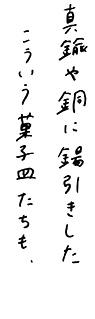 真鍮や銅に錫引きした
こういう菓子皿たちも、